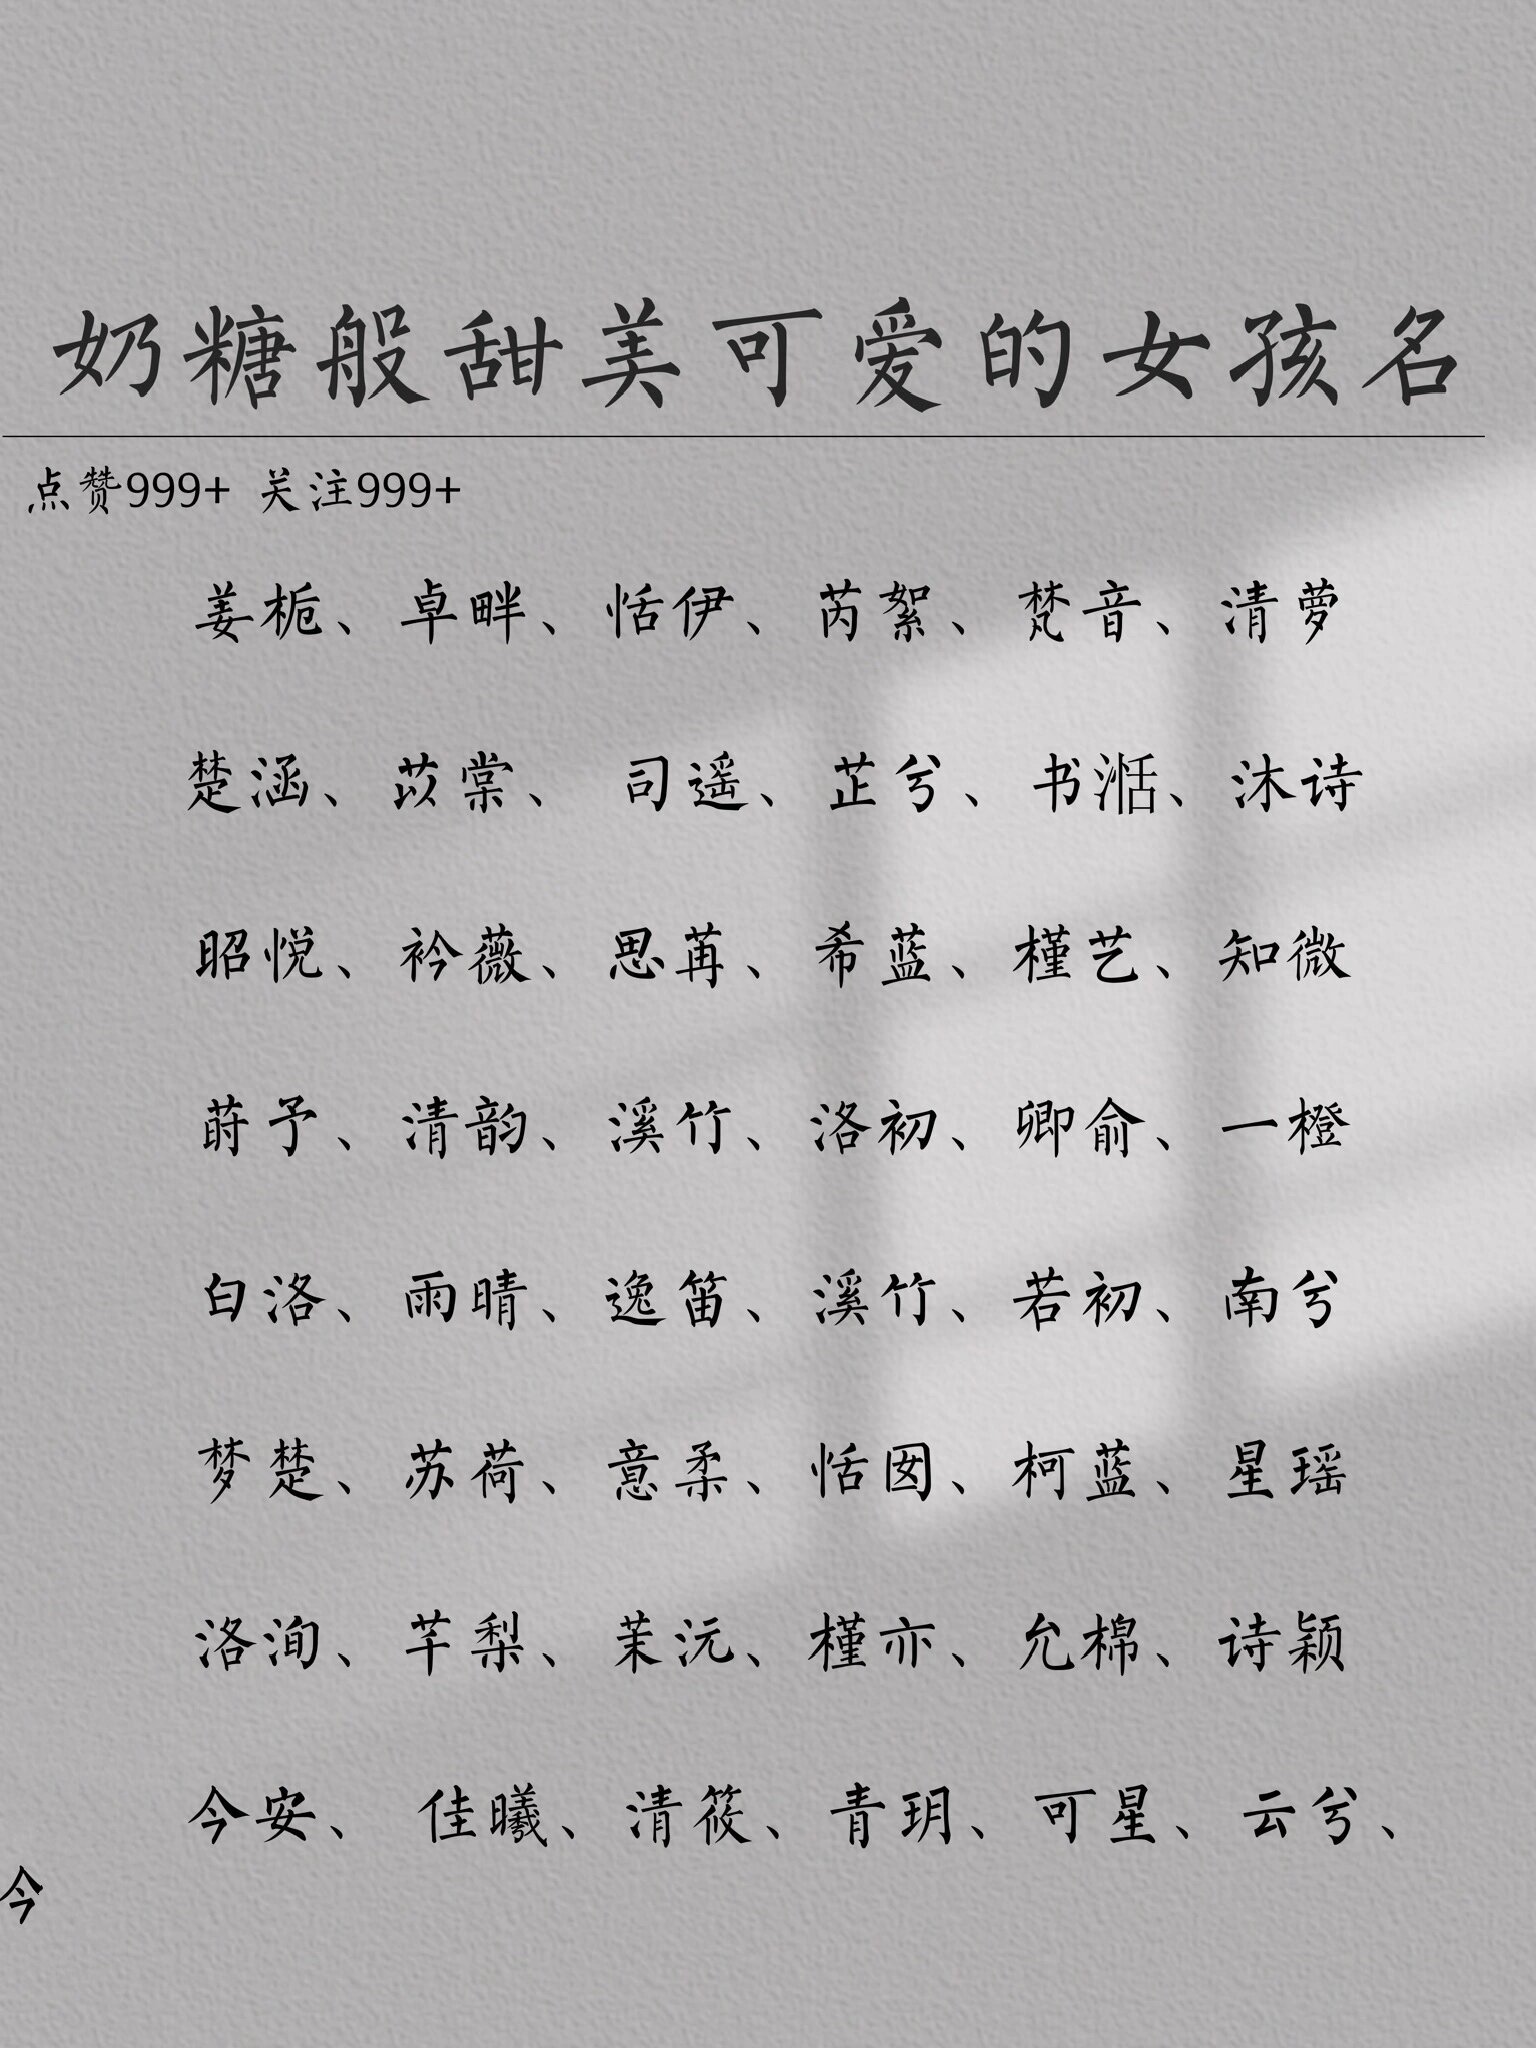 奶糖般甜美可爱的女孩名
点赞999+ 关注999+
姜栀、卓畔、恬伊、芮絮、梵音、清萝
楚涵、苡棠、司遥、芷兮、书湉、沐诗
昭悦、衿薇、思苒、希蓝、槿艺、知微
莳予、清韵、溪竹、洛初、卿俞、一橙
白洛、雨晴、逸笛、溪竹、若初、南兮
梦楚、苏荷、意柔、恬囡、柯蓝、星瑶
洛洵、芊梨、茉沅、槿亦、允棉、诗颖
今安、佳曦、清筱、青玥、可星、云兮、
今